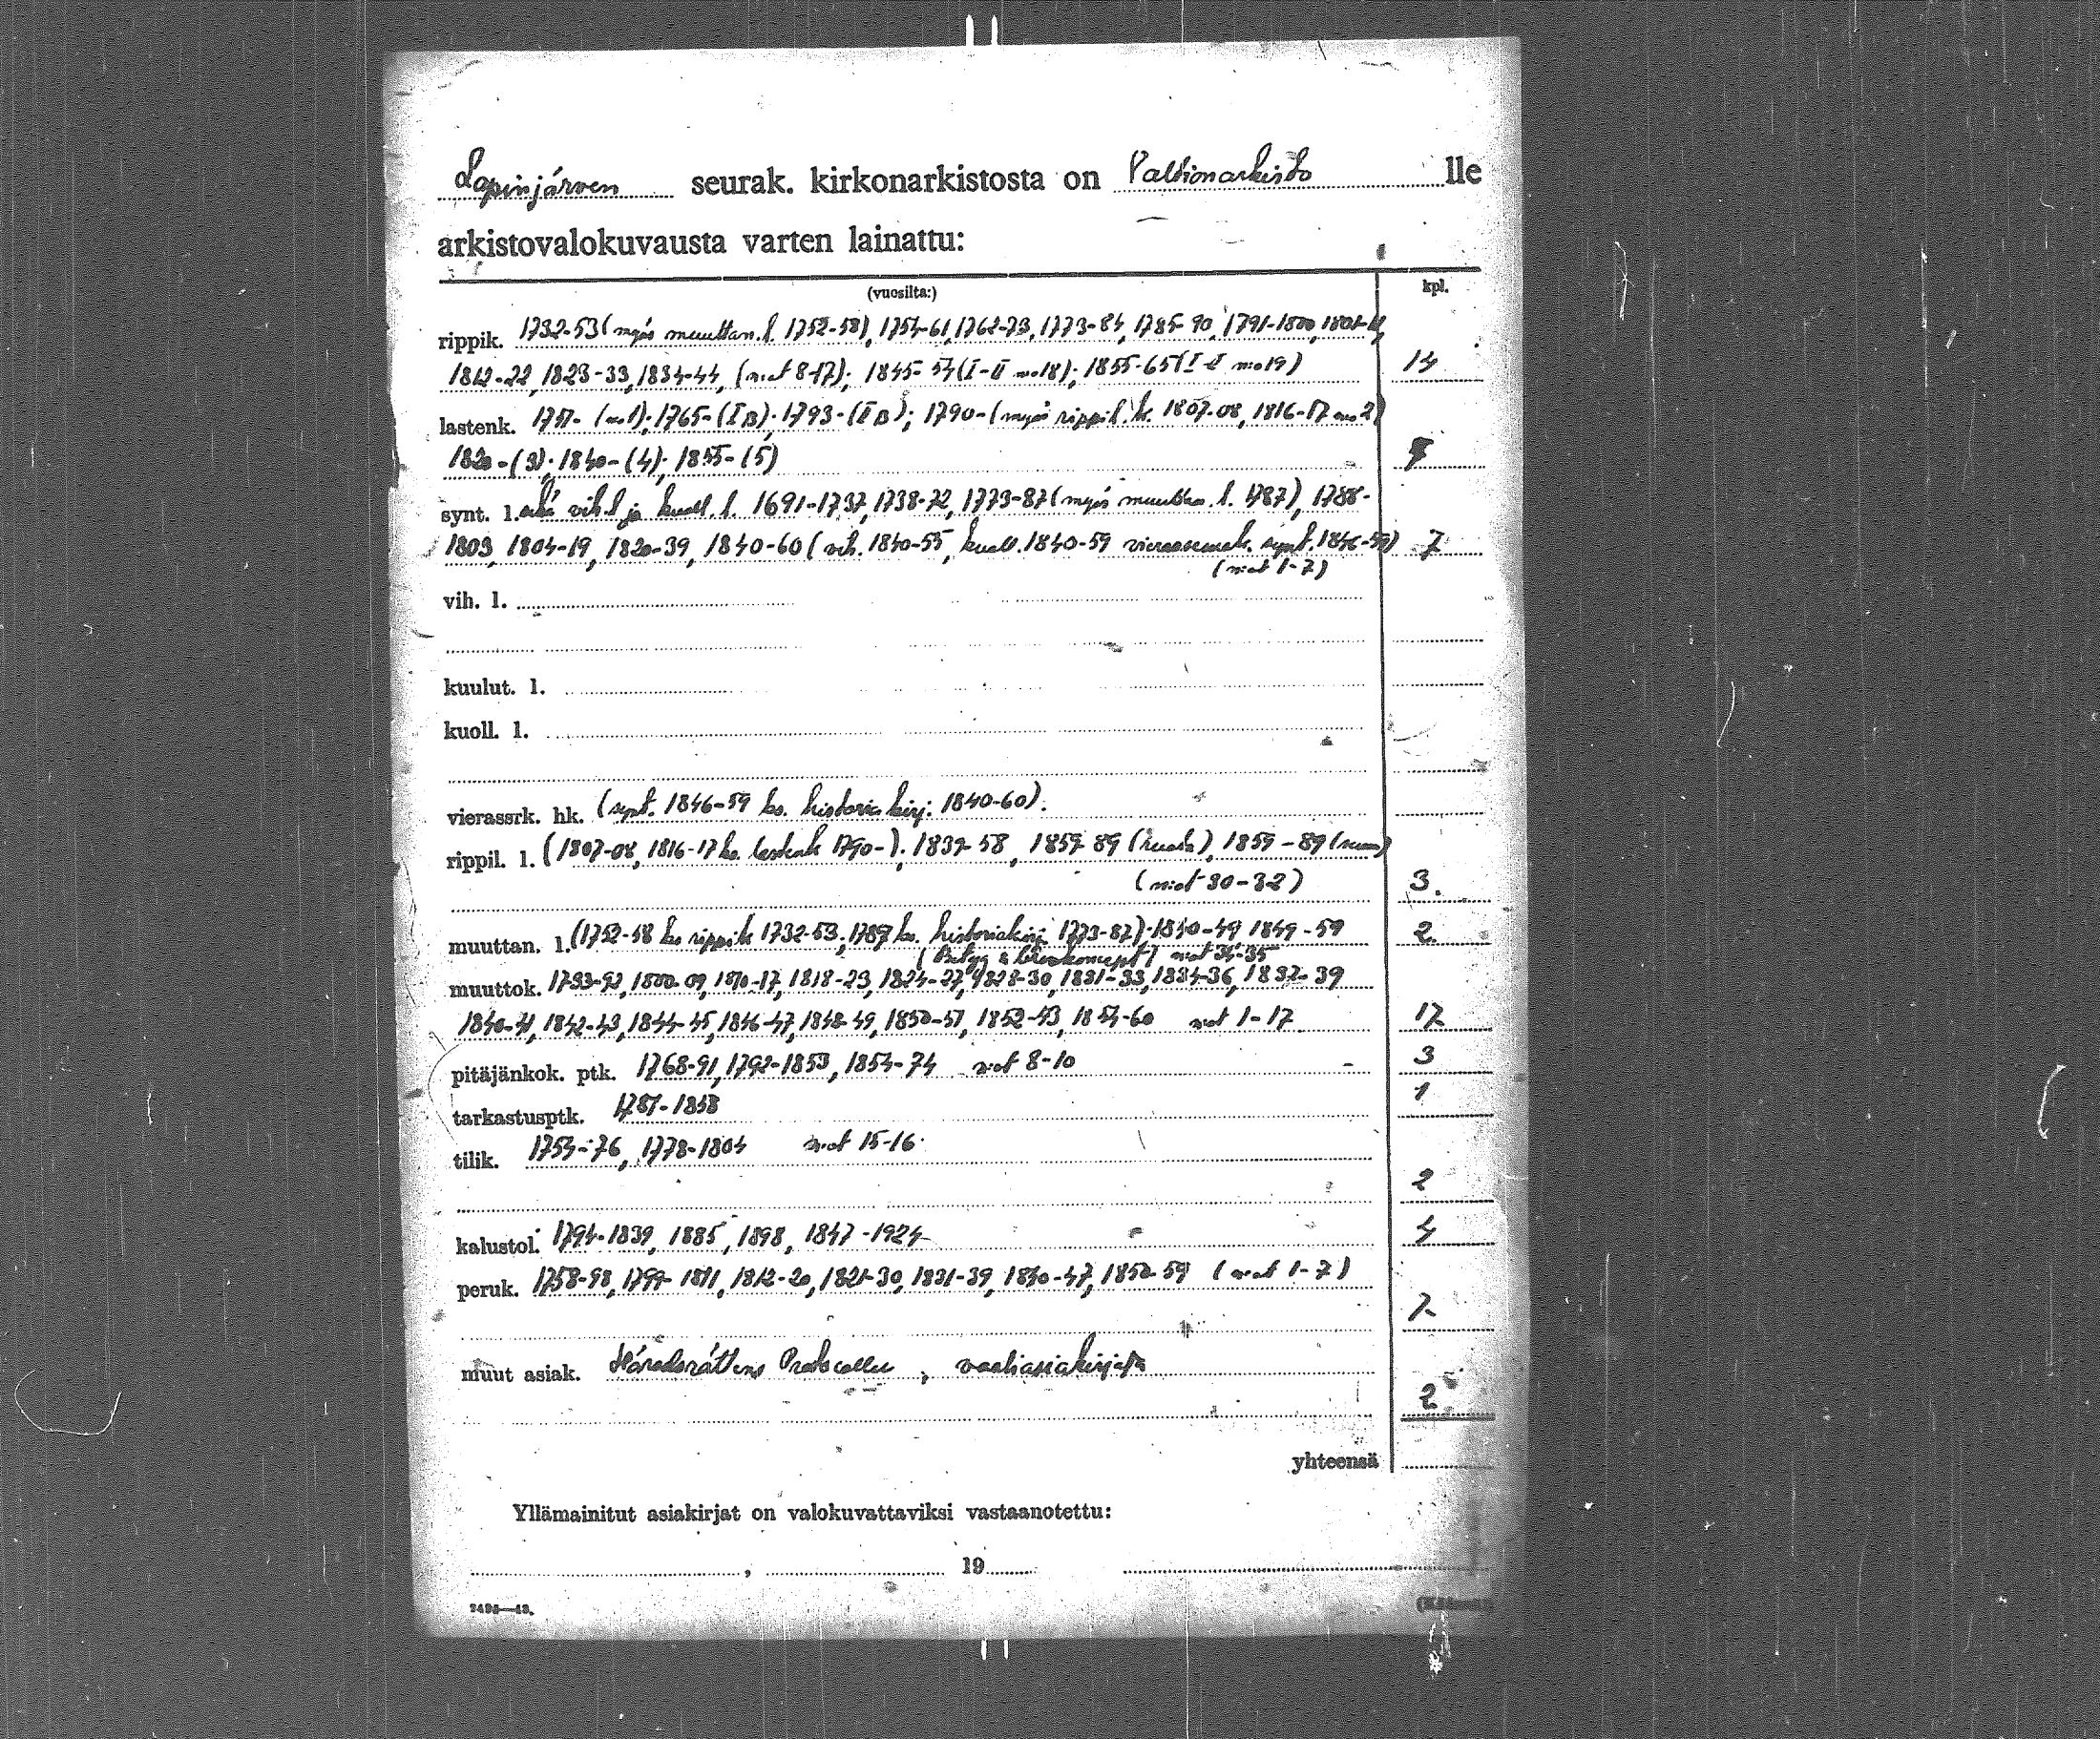 Lapinjärven seurak. kirkonarkistosta on Valtionarkisto lle
arkistovalokuvausta varten lainattu:
(vuosilta:) kpl.
rippik. 1732-53 (myös muuttan. l. 1752-58), 1754-61, 1762-73, 1773-84, 1785-90, 1791-1800, 1801-11,
1812-22, 1823-33, 1834-44, (n:ot 8-17); 1845-54 (I-II n:o 18); 1855-65 (I-II n:o 19) 14
lastenk. 1751- (n:o 1); 1765- (I B); 1793- (II B); 1790- (myös rippil. lk. 1807-08, 1816-17 n:o 2)
1820-(3); 1840-(4); 1855-(5) 7
synt. l. sekä vih. l. ja kuoll. l. 1691-1737, 1738-72, 1773-87 (myös muuttan. l. 1787), 1788-
1803, 1804-19, 1820-39, 1840-60 (vih. 1840-55, kuoll. 1840-59 vierasseurak. synt. 1846-59) 7
(n:ot 1-7)
vih. l.
kuulut. l.
kuoll. l.
vierassrk. hk. (synt. 1846-59 ks. historiakirj. 1840-60).
rippil. l. (1807-08, 1816-17 ks. lastenk. 1790-); 1839-58, 1859-89 (ruots.), 1859-89 (suom.)
(n:ot 30-32) 3.
muuttan. l. (1752-58 ks rippik 1732-53, 1787 ks. historiakirj. 1773-87). 1840-49 1849-59 2
(Betyg &) n:ot 34-35
muuttok. 1793-92, 1800-09, 1810-17, 1818-23, 1824-27, 1828-30, 1831-33, 1834-36, 1837-39
1840-41, 1842-43, 1844-45, 1846-47, 1848-49, 1850-51, 1852-53, 1854-60 n:ot 1-17 17
pitäjänkok. ptk. 1768-91, 1792-1853, 1854-74 n:ot 8-10 3
tarkastusptk. 1787-1858 1
tilik. 1754-76, 1778-1804 n:ot 15-16
2
kalustol. 1794-1839, 1885, 1898, 1847-1924 4
peruk. 1758-98, 1799-1811, 1812-20, 1821-30, 1831-39, 1840-47, 1850-59 (n:ot 1-7)
7
muut asiak. Häradsrättens Protocoller, vaaliasiakirjat
2
yhteensä
Yllämainitut asiakirjat on valokuvattaviksi vastaanotettu:
, 19